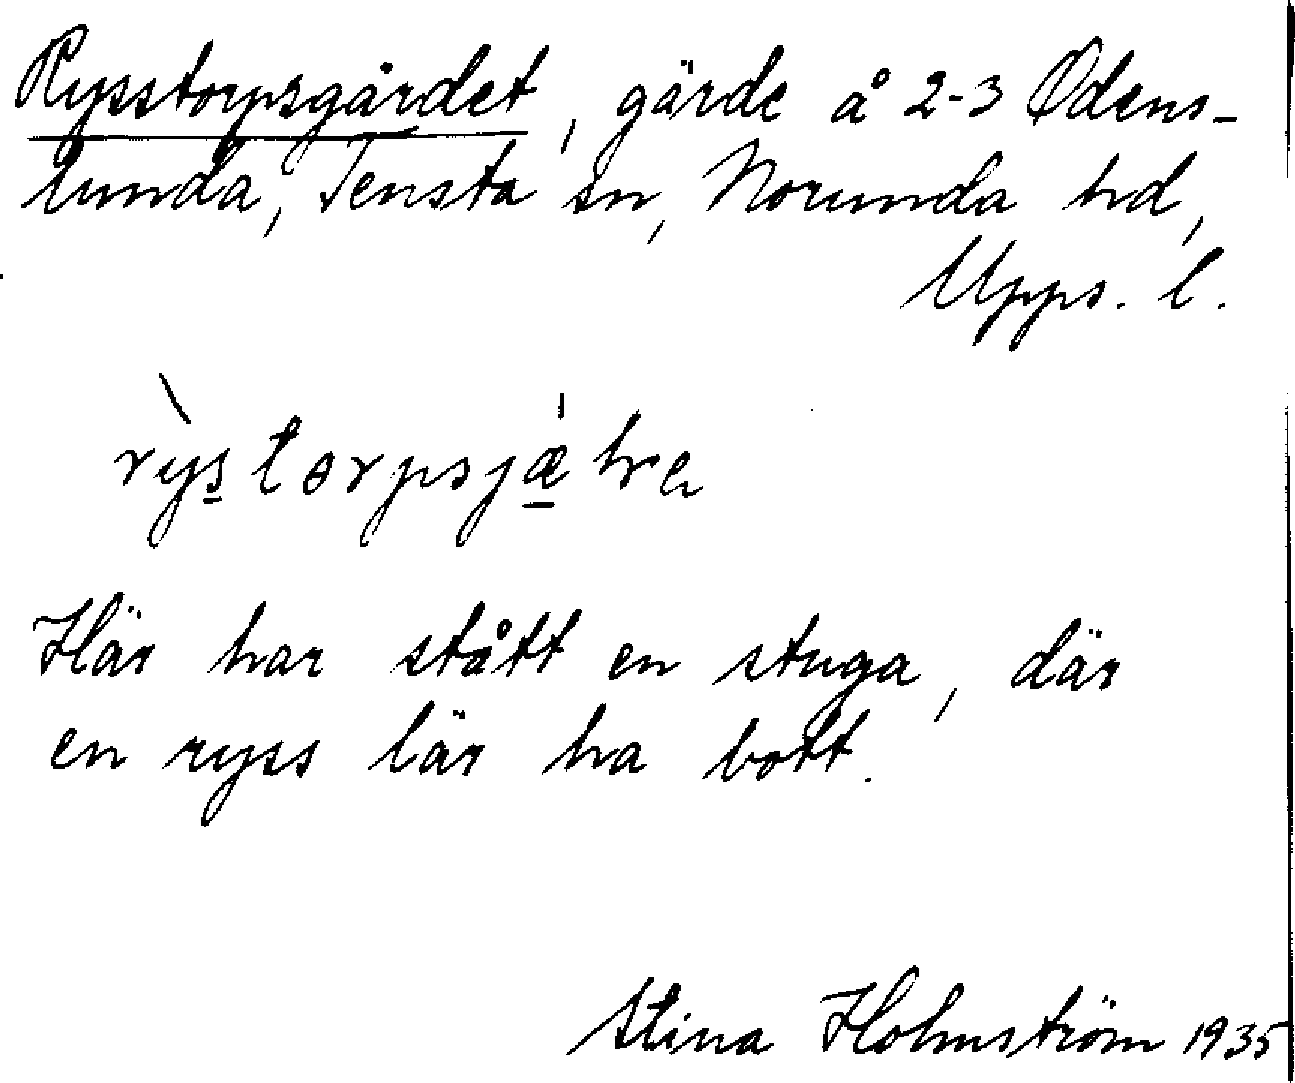 Rysstorpsgärdet, gärde å 2-3 Odens-
lunda, Tensta sn, Norunda hd,
Upps. l.
Här har stått en stuga, där
en ryss lär ha bott.
Stina Holmström 1935